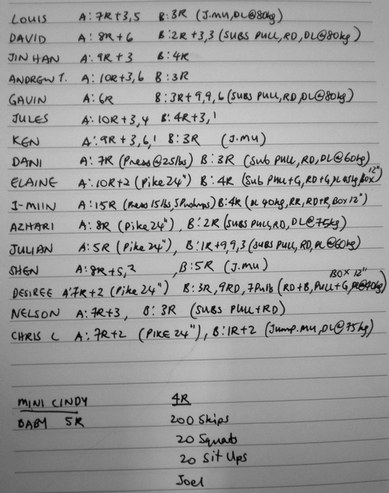 LOUIS A: 7R+3,5 B: 3R (J.MU, DL@80kg)
DAVID A: 9R+6 B: 2R+3,3 (SUBS PULL, RD, DL@80kg)
JIN HAN A: 9R+3 B: 4R
ANDREW T. A: 10R+3,6 B: 3R
GAVIN A: 6R B: 3R+9,9,6 (SUBS PULL, RD, DL@80kg)
JULES A: 10R+3,4 B: 4R+3,1
KEN A: 9R+3,6,1 B: 3R (J.MU)
DANI A: 7R (Press@25lbs) B: 3R (Sub PULL, RD, DL@60kg)
ELAINE A: 10R+2 (Pike 24") B: 4R (Sub PULL+G, RD+G, Box 12"
I-MIIN A: 15R (Press 15lbs, B: 4R 40kg, RR, Box 12")
AZHARI A: 8R (Pike 24"), B: 2R (SUBS PULL, RD, DL@75kg)
JULIAN A: 5R (Pike 24"), B: 1R+9,9,3 (SUBS PULL, RD, DL@60kg)
SHEN A: 8R+5,2, B: 5R (J.MU)
DESIREE A: 7R+2 (Pike 24") B: 3R, 9RD, 7Pulls (RD+B, Pull+G, BOX 12"
NELSON A: 7R+3, B: 3R (SUBS PULL+RD)
CHRIS L A: 7R+2 (PIKE 24"), B: 1R+2 (Jump.MU, DL@75kg)
MINI CINDY 4R
BABY 5R 200 Skips
20 Squats
20 Sit Ups
Joel